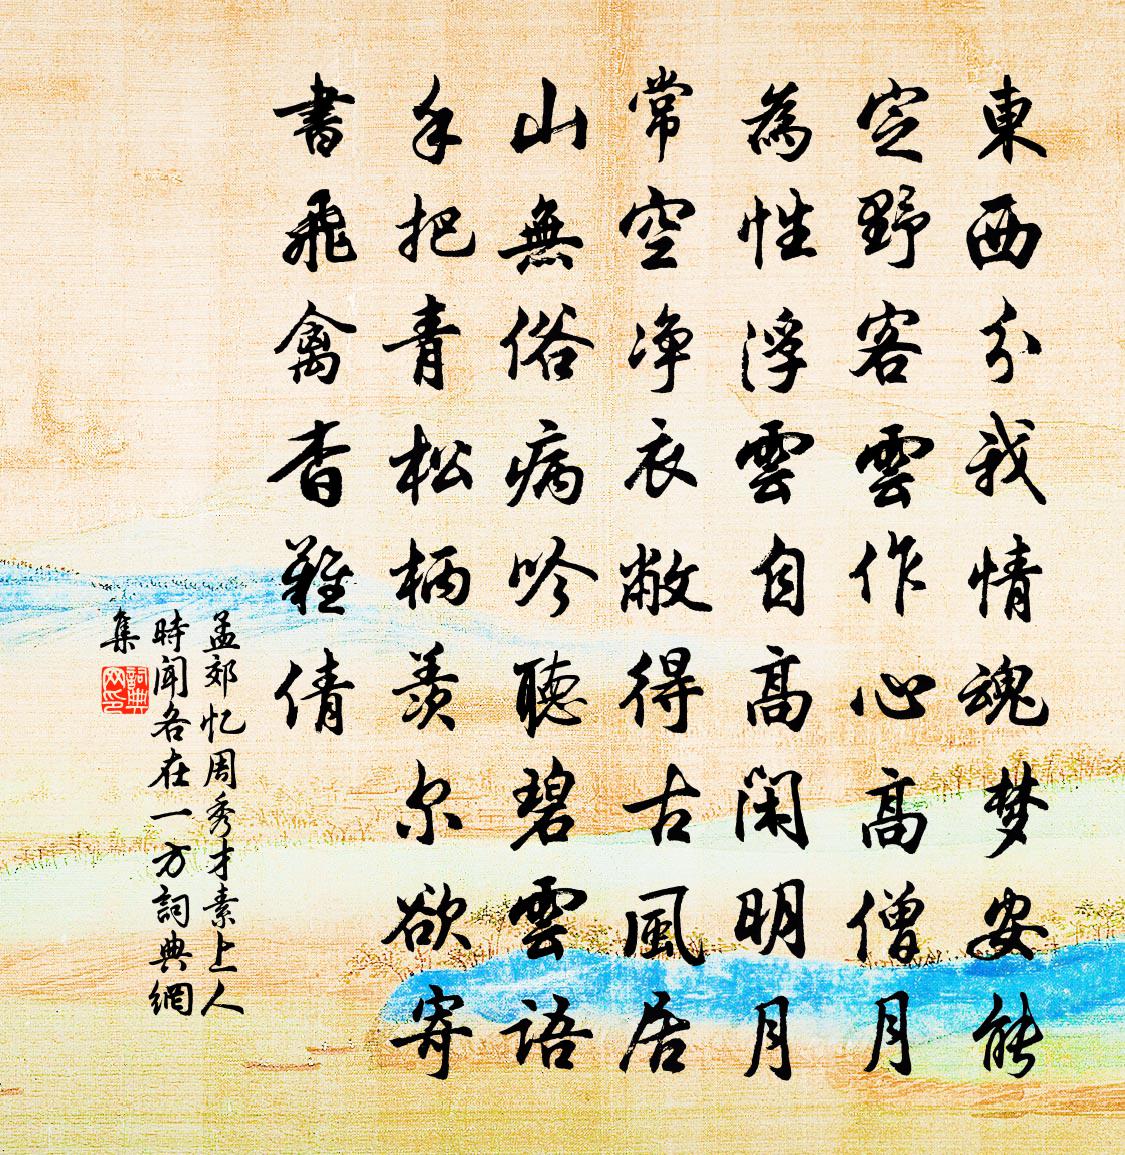 東西分我情魂梦安能
定野客雲作心高僧月
為性浮雲自高閑明月
常空净衣敝得古風居
山無俗病吟聽碧雲語
手把青松柄羡尔欲寄
書飛禽杳難倩
孟郊忆周秀才素上人
時聞各在一方詞典網
集
詞典网印